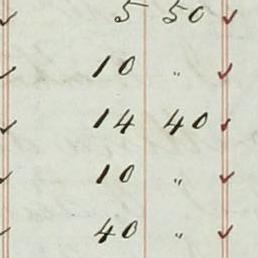 5 50
10 "
14 40
10 "
40 "